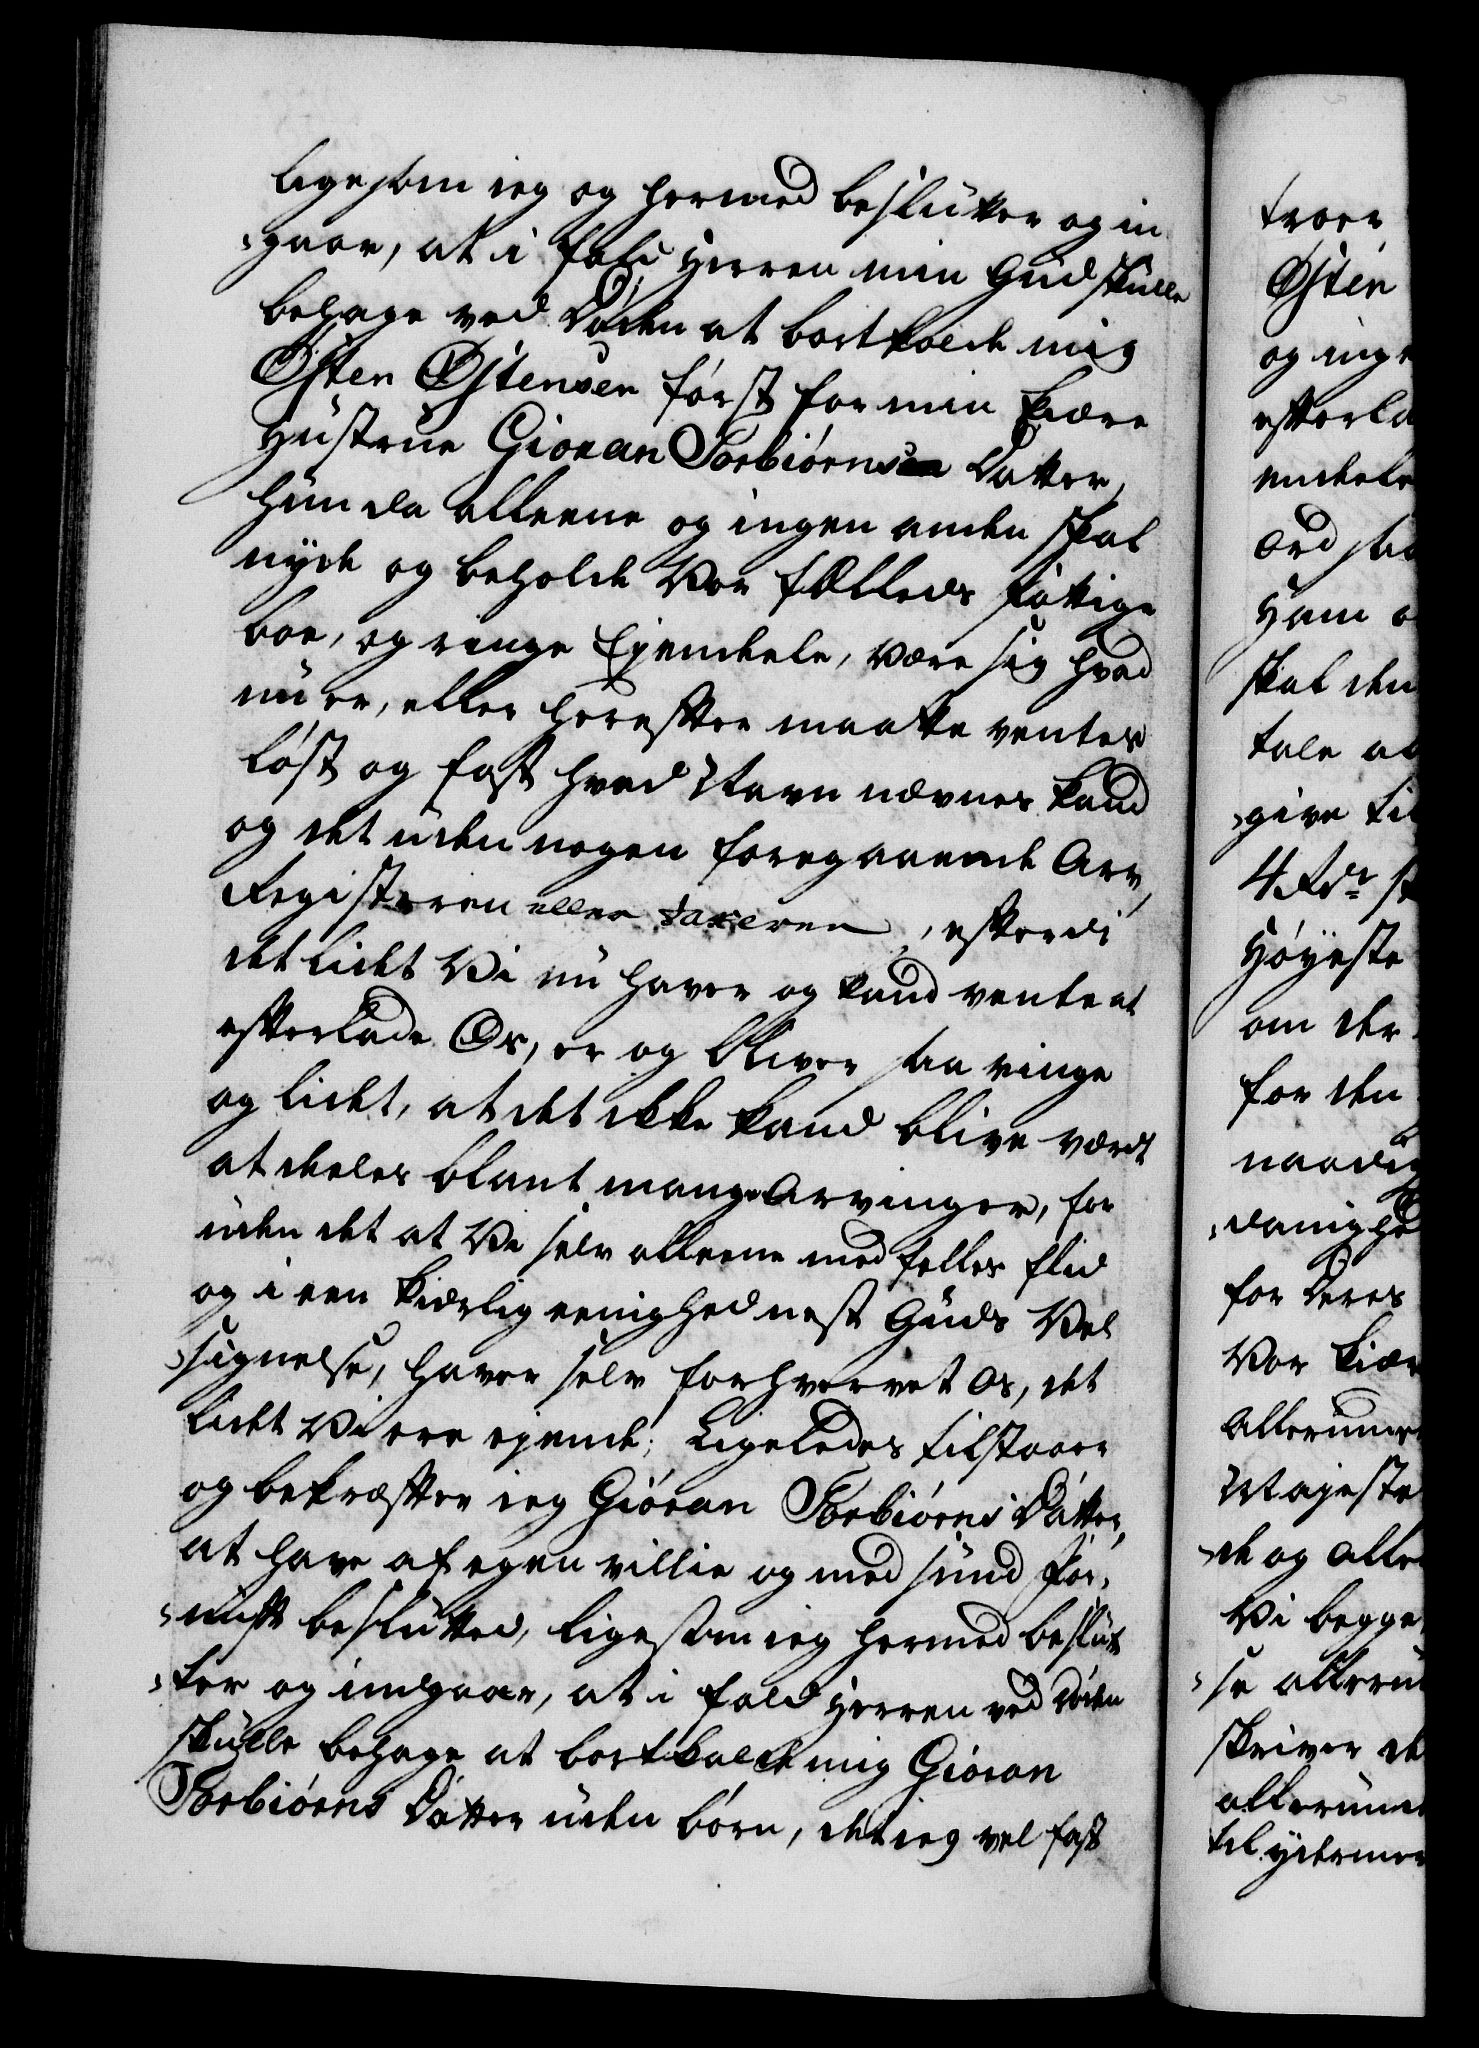 ligesom ieg og hermed beslutter og in
-gaar, at i fald Herren min Gud skulle
behage ved Døden at bortkalde mig
Østen Østensen først for min kiære
Hustrue Gioran Torbiørns Datter,
hun da alleene og ingen anden skal
nyde og beholde Vor fælleds fattige
boe, og ringe Ejendele, være sig hvad
nu er, eller herefter maatte ventes
løst og fast hvad Navn nævnes kand
og det uden nogen foregaaende Arv,
Registeren eller taxeren, efterdi
det lidet Vi nu haver og kand vente at
efterlade Os, er og bliver saa ringe
og lidet, at det ikke kand blive værdt
at deeles blant mange Arvinger, for
uden det at Vi selv alleene med felles flid
og i een kiærlig eenighed nest Guds Vel
-signelse, haver selv forhvervet os, det
lidet Vi ere ejende; Ligeledes tilstaaer
og bekræfter ieg Gióran Torbiørns Datter,
at have af egen villie og med sund For-
-nuft beslutted, ligesom ieg hermed beslut
-ter og indgaar, at i fald Herren ved Døden
skulle behage at bortkalde mig Gióran
Torbiørns Datter uden børn, det ieg vel fast
troer
Østen
og inge
efterla
endele
ord saa
Ham
skal den
tale
-give til
4 Rdr
Høyeste
om der
for den
naadig
-danighed
for Deres
Vor kiær
Allerunder
Majeste
-de og alle
Vi begge
-se allerun
skriver
allerund
til ydermer